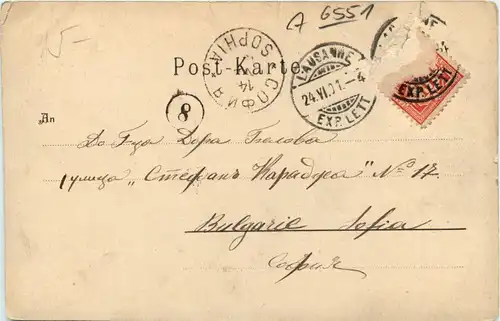 15-
A 6551
Post-Karte
СОФИЯ
SOPHIA
14
LAUSANNE
24.VI.01.-4
EXP. LETT
EXP. LETT
8
An
До Г-ца Дора Белова
улица „Стефанъ Караджа" No 17.
Bulgarie Sofia
София